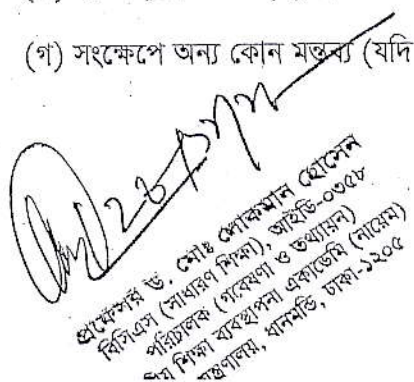 (গ) সংক্ষেপে অন্য কোন মন্তব্য (যদি
প্রফেসর ড. মোঃ লোকমান হোসেন
বিসিএস (সাধারণ শিক্ষা), আইডি-০৩৫৮
পরিচালক (গবেষণা ও তথ্যায়ন)
শিক্ষা ব্যবস্থাপনা একাডেমি (নায়েম)
ধানমন্ডি, ঢাকা-১২০৫